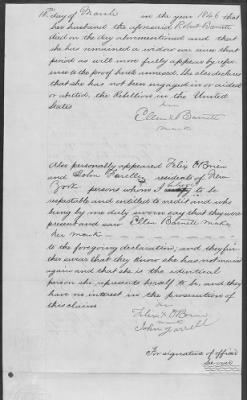 18th day of March in the year 1846 that
her husband the aforesaid Robert Barrett
died on the day abovementioned and that
she has remained a widow ever since that
period as will more fully appear by refer-
ence to the proof hereto annexed. She also declares
that she has not been engaged in or aided
or abetted, the Rebellion in the United
States
her
Ellen X Barrett
mark
Also personally appeared Felix O'Brien
and John Farrell residents of New
York persons whom I to be
respectable and entitled to credit and who
being by me duly sworn say that they were
present and saw Ellen Barrett make
her mark
to the foregoing declaration, and they fur-
ther swear that they know she has not married
again and that she is the identical
person she represents herself to be, and they
have no interest in the prosecution of
this claim
his
Felix X O'Brien
mark
John Farrell
For signature of officer